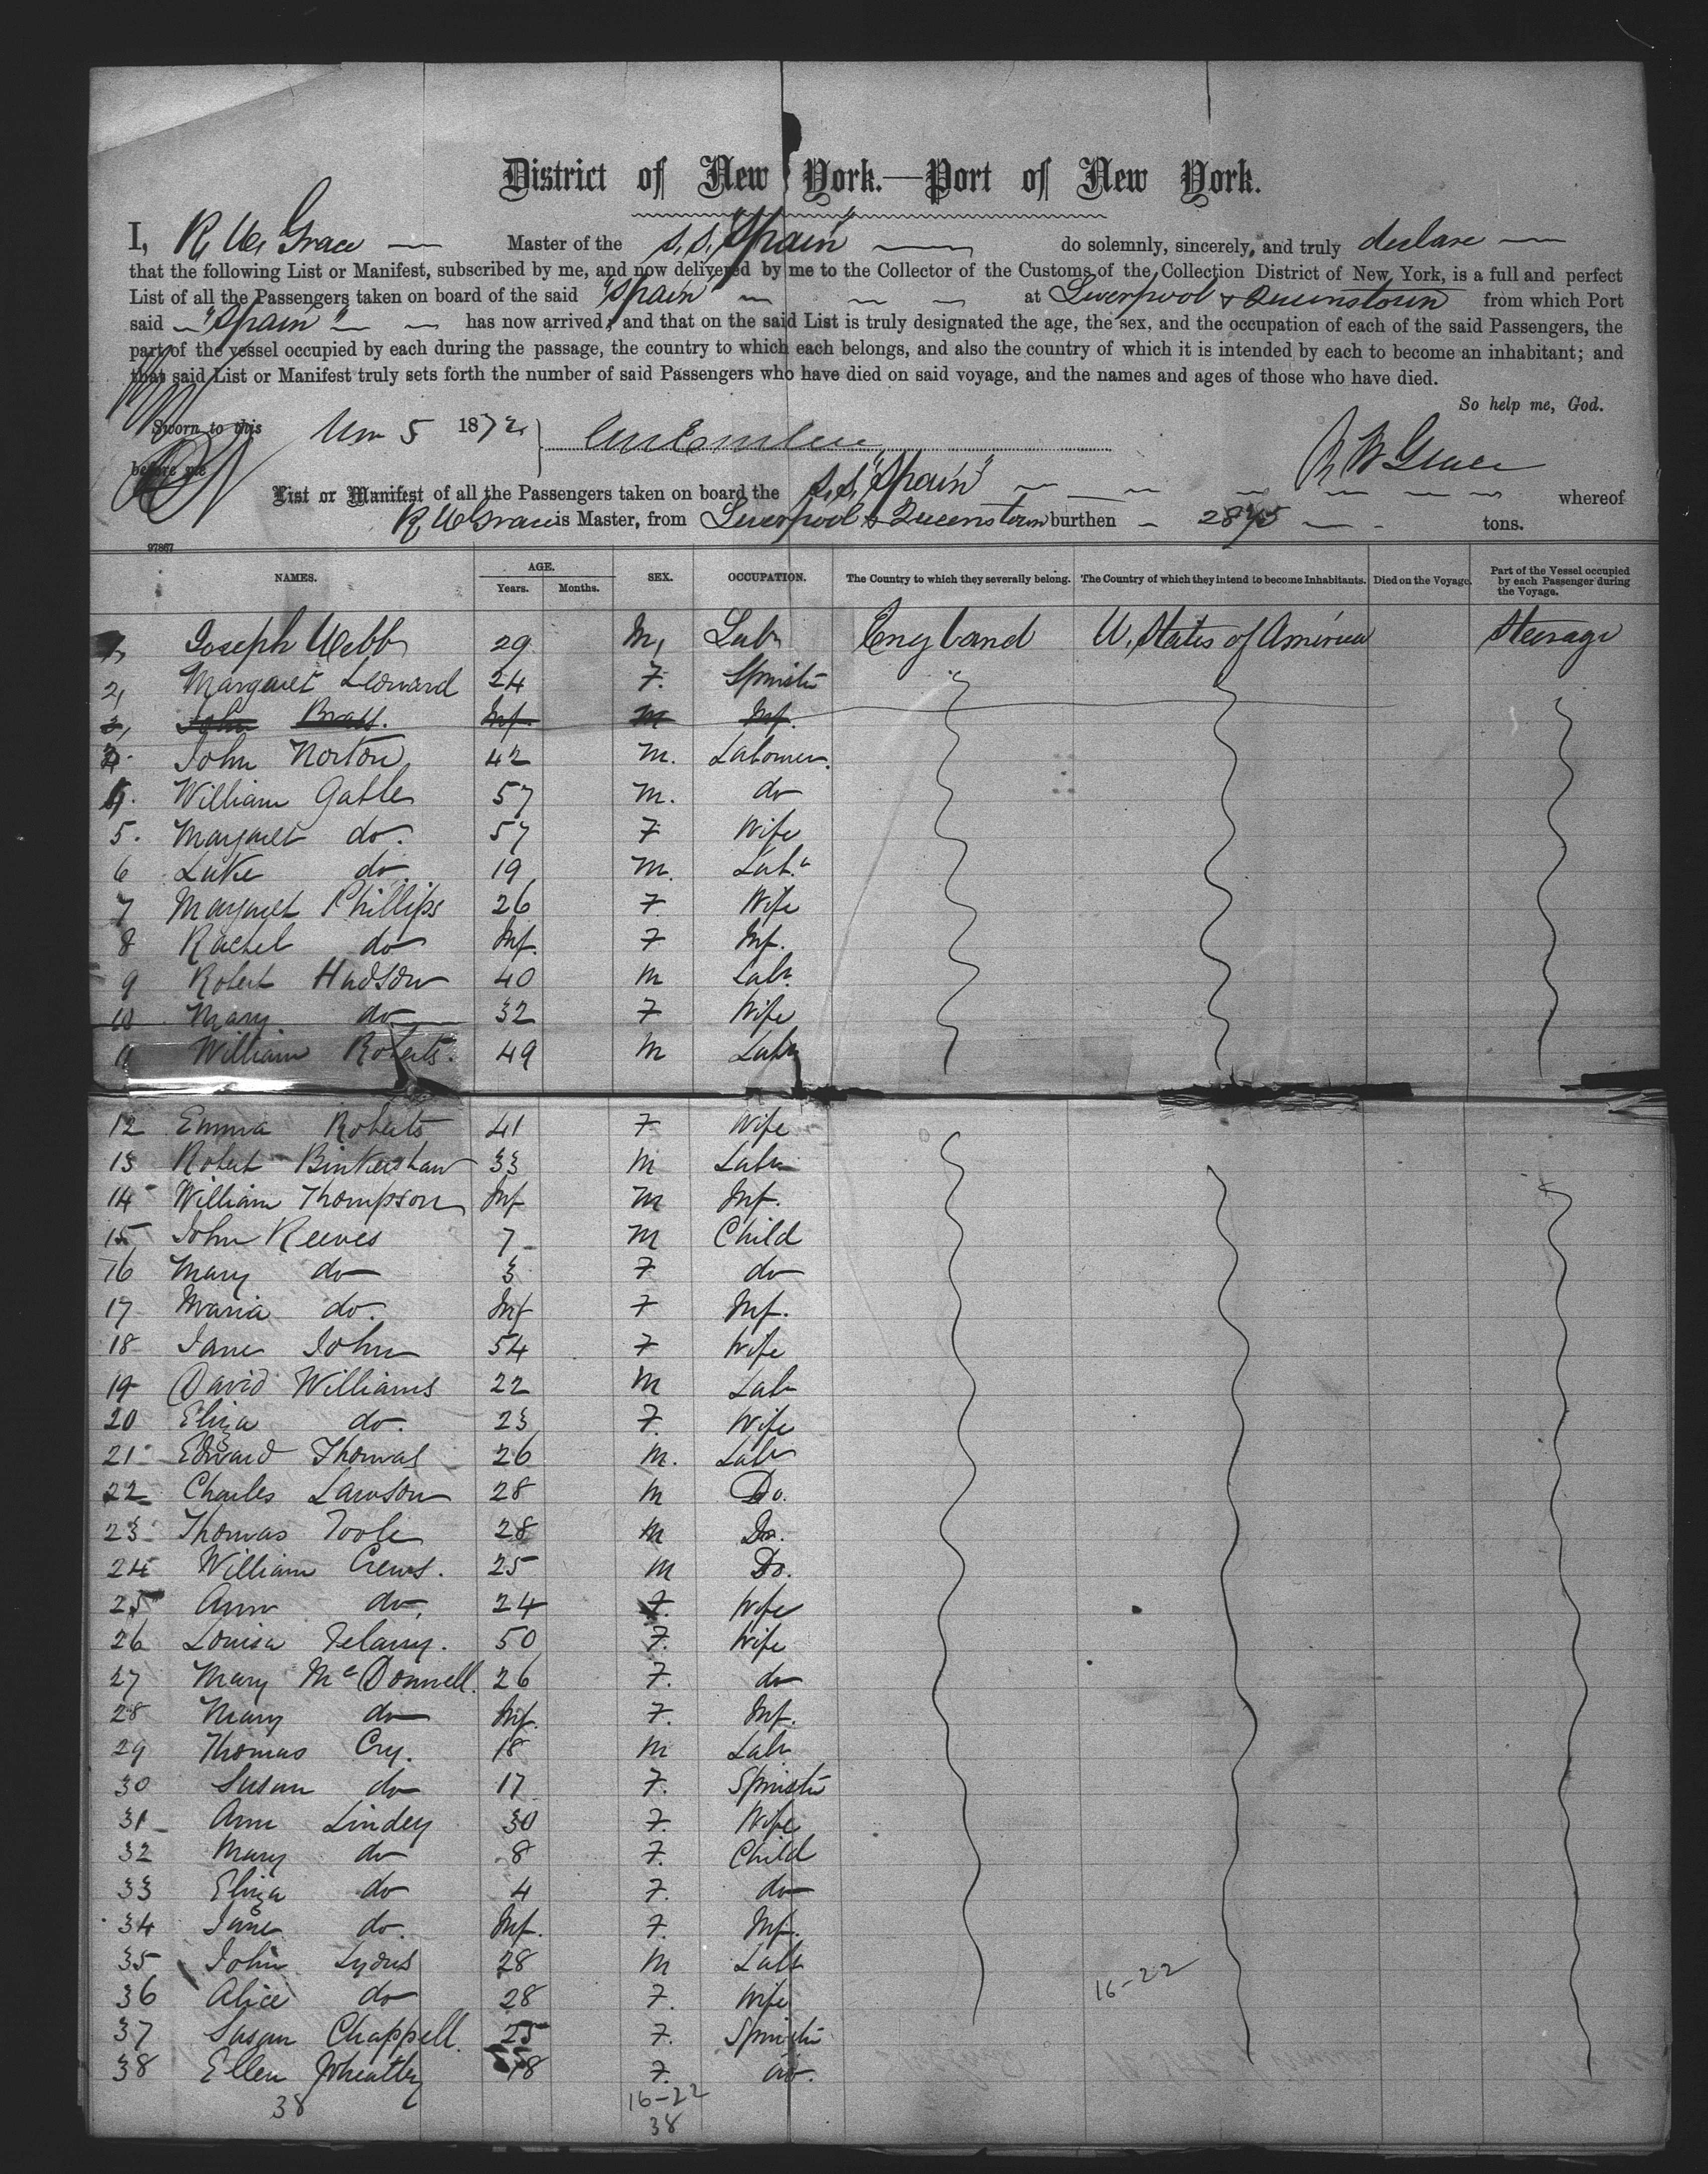 District of New York.—Port of New York.
I, R. W. Grace — Master of the s.s. "Spain" — do solemnly, sincerely, and truly declare —
that the following List or Manifest, subscribed by me, and now delivered by me to the Collector of the Customs of the Collection District of New York, is a full and perfect
List of all the Passengers taken on board of the said "Spain" — — — at Liverpool & Queenstown from which Port
said — "Spain" — — has now arrived; and that on the said List is truly designated the age, the sex, and the occupation of each of the said Passengers, the
part of the vessel occupied by each during the passage, the country to which each belongs, and also the country of which it is intended by each to become an inhabitant; and
that said List or Manifest truly sets forth the number of said Passengers who have died on said voyage, and the names and ages of those who have died.
So help me, God.
Sworn to this 5 1872
before me R W Grace
List or Manifest of all the Passengers taken on board the s.s. "Spain" — — — — — — — whereof
R W Grace is Master, from Liverpool & Queenstown burthen — 2875 — - tons.
97867
NAMES. AGE. Years. Months. SEX. OCCUPATION. The Country to which they severally belong. The Country of which they intend to become Inhabitants. Died on the Voyage. Part of the Vessel occupied by each Passenger during the Voyage.
1, Joseph Webb 29 M, Labr England U. States of America Steerage
2, Margaret Leonard 24 F. Spinstr
3, John Inf. M Inf.
3. John Norton 42 M. Labourer.
4. William Gable 57 M. do
5. Margaret do. 57 F Wife
6 Luke do. 19 M. Labr
7 Margaret Phillips 26 F. Wife
8 Rachel do Inf. F Inf.
9 Robert Hudson 40 M Labr
10 Mary do 32 F Wife
11 William Roberts. 49 M Labr
12 Emma Roberts 41 F Wife
13 Robert Binkershaw 33 M Labr
14 William Thompson Inf M Inf.
15 John Reeves 7 M Child
16 Mary do 3 F do
17 Maria do. Inf F Inf.
18 Jane John 54 F Wife
19 David Williams 22 M Labr
20 Eliza do. 23 F. Wife
21 Edward Thomas 26 M. Labr
22 Charles Lawson 28 M Do.
23 Thomas Toole 28 M Do.
24 William Crews. 25 M Do.
25 Ann do. 24 F. Wife
26 Louisa 50 F. Wife
27 Mary McDonnell. 26 F. do
28 Mary do Inf. F. Inf.
29 Thomas Cry. 18 M Labr
30 Susan do 17 F. Spinstr
31 Ann Lindey 30 F. Wife
32 Mary do 8 F. Child
33 Eliza do 4 F. do
34 Jane do. Inf. F. Inf.
35 John Lydus 28 M Labr
36 Alice do 28 F. Wife 16-22
37 Susan Chappell. 25 F. Spinstr
38 Ellen Wheatley 18 F. do.
38 16-22
38